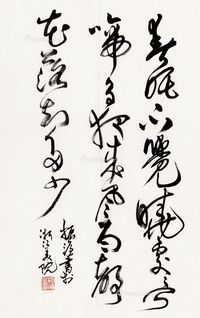 春眠不覺曉處處聞
啼鳥夜來風雨聲
花落知多少
振濂書於
浙江美院